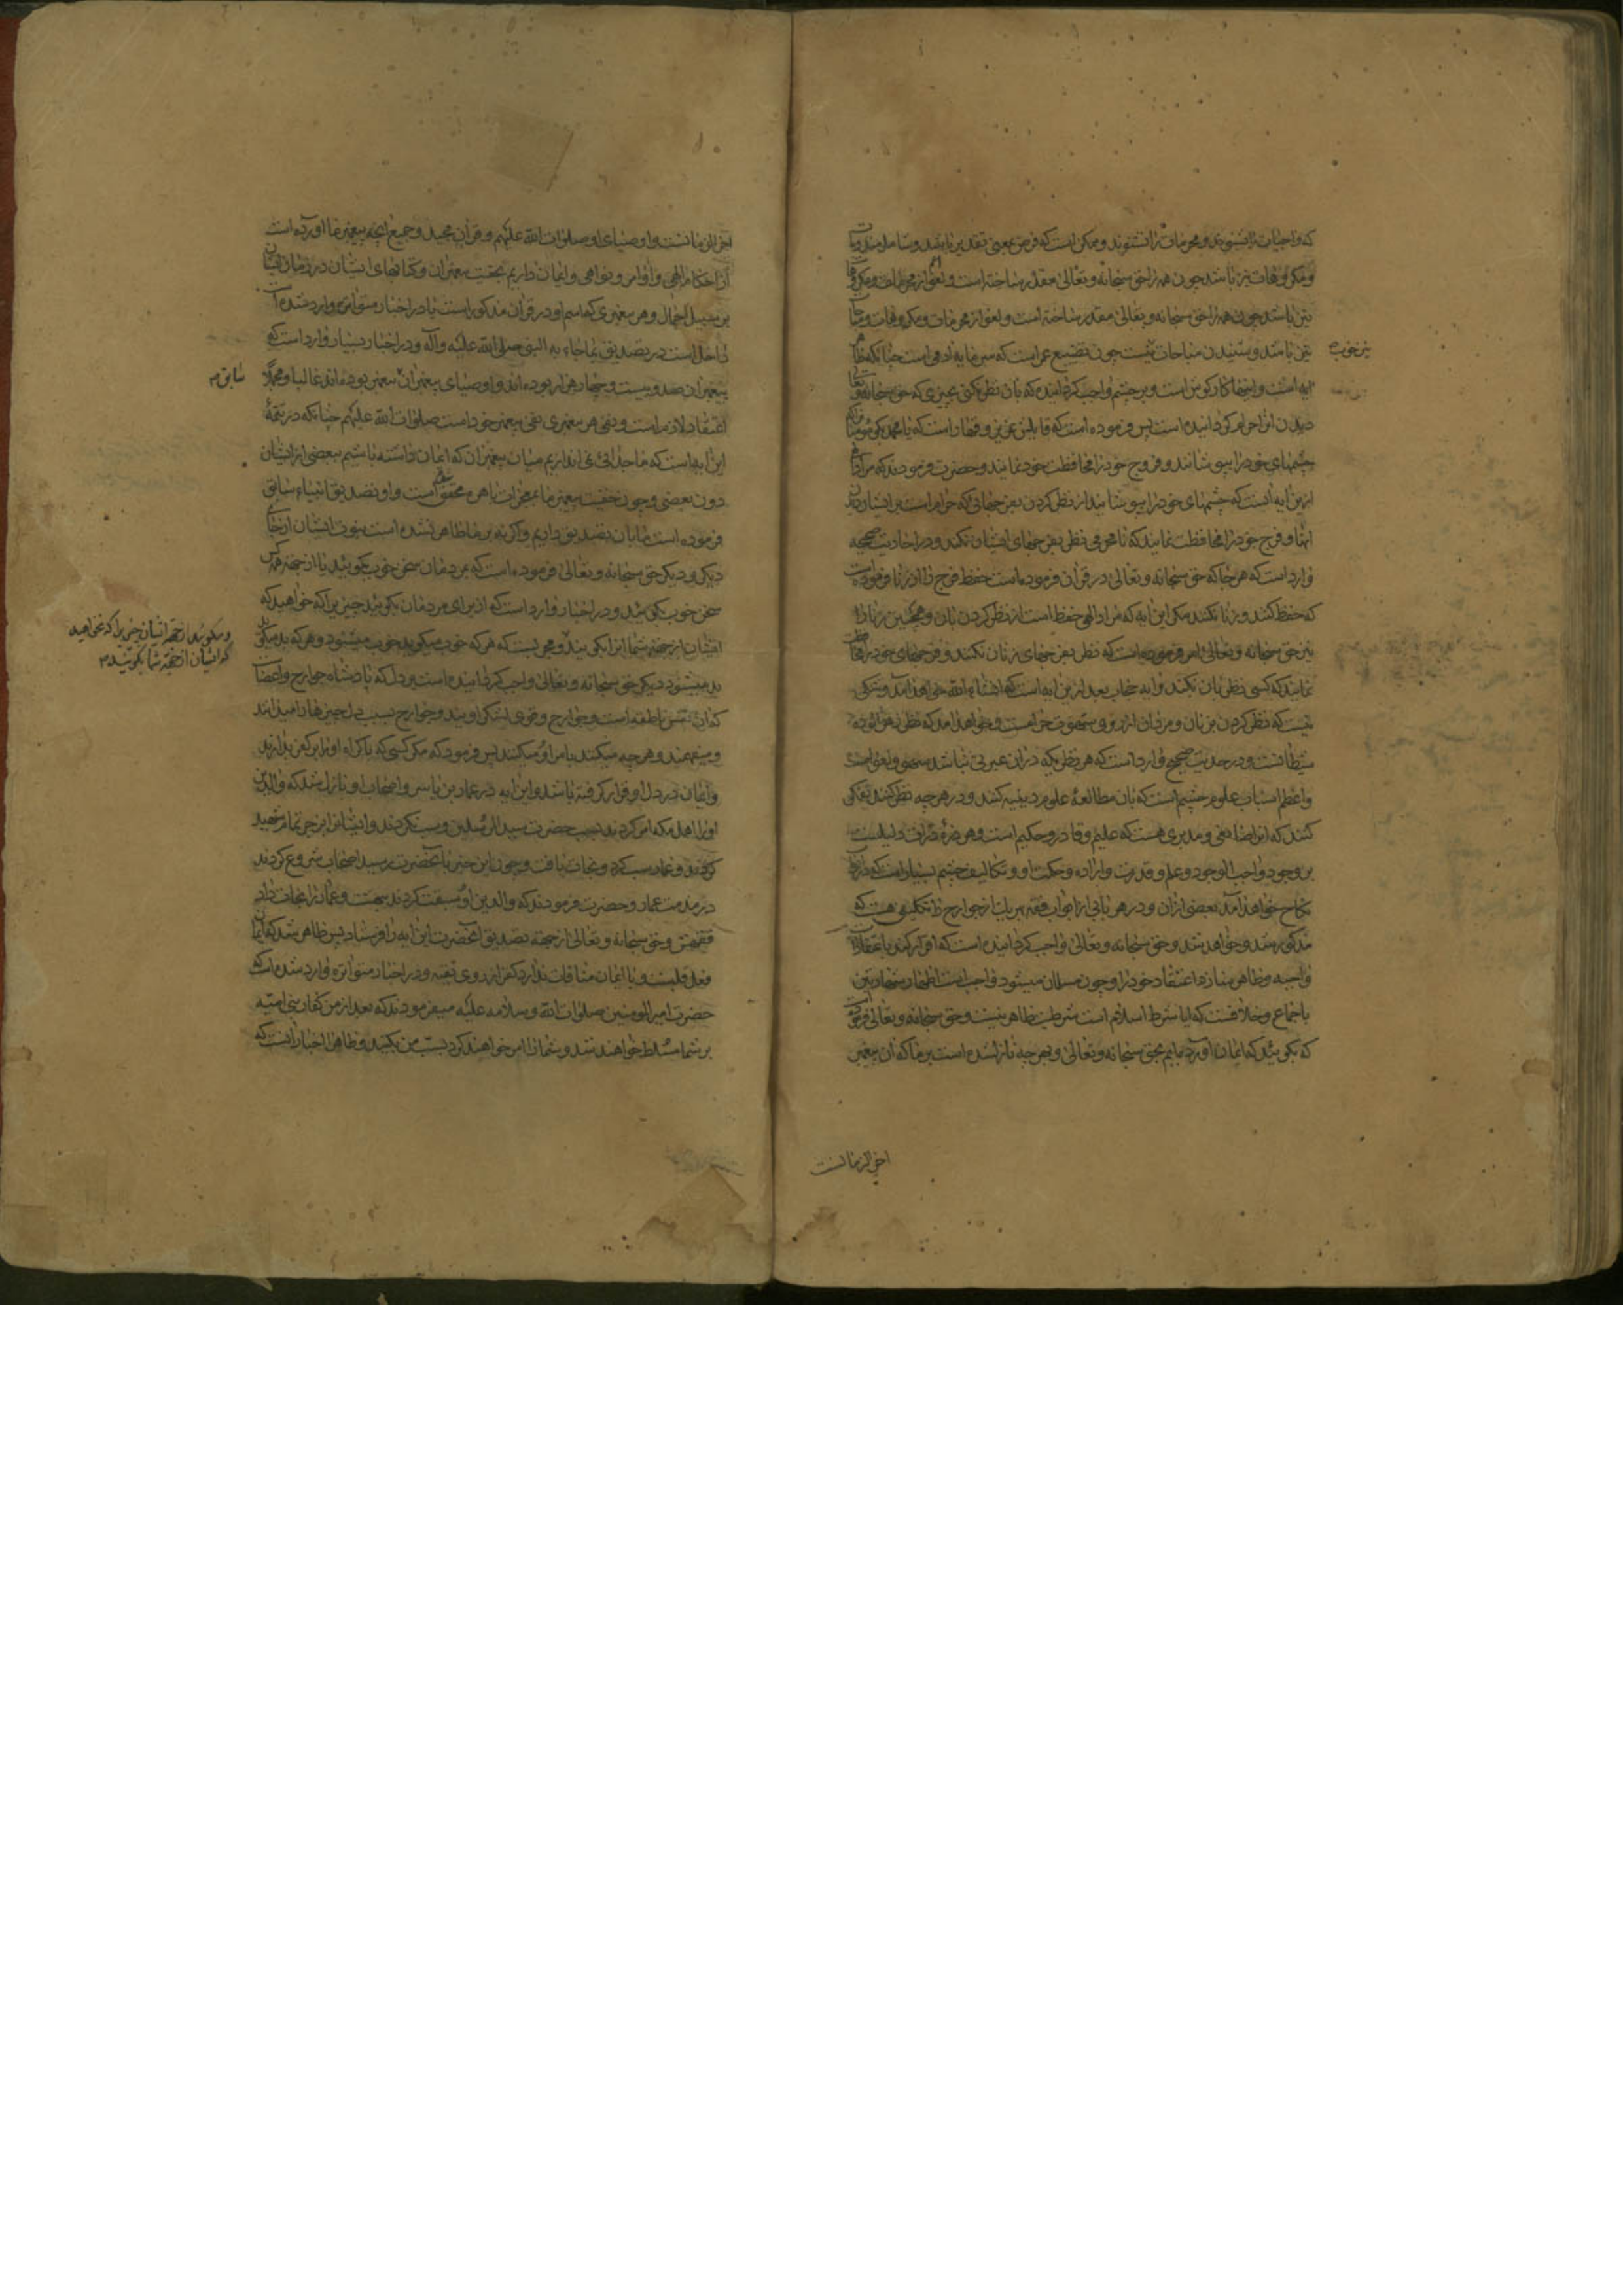 که واجبات را بشنوند و محرمات را نشنوند و ممکن است که فرض بمعنی تقدیر باشد و شامل مندوبات
و مکروهات نیز باشد چون همه را حق سبحانه و تعالی مقدر ساخته است و لغو از محرمات و مکروهات
نیز باشد چون همه را حق سبحانه و تعالی مقدر ساخته است و لغو از محرمات و مکروهات و مباحات
نیز باشد و شنیدن مباحات نیست چون تضییع عمر است که سرمایه آدمی است چنانکه ظاهر
نیز خوب
آیه است و اینها کار گوش است و بر چشم واجب گردانیده که بان نظر نکنی بچیزی که حق سبحانه و تعالی
دیدن آنرا حرام گردانیده است پس فرموده است که قایلش عزیز و قهار است که یا محمد بگو مؤمنان را که
چشمهای خود را بپوشانند و فروج خود را محافظت خود نمایند و حضرت فرمودند که مراد
ازین آیه آنست که چشمهای خود را بپوشانید از نظر کردن بفرجهائی که حرام است بر ایشان دیدن
آنها و فرج خود را محافظت نمایند که نامحرمی نظر بفرجهای ایشان نکند و در احادیث صحیحه
وارد است که هر جا که حق سبحانه و تعالی در قرآن فرموده است حفظ فرج را از زنا فرموده است
که حفظ کنند و زنا نکنند مگر این آیه که مراد الهی حفظ است از نظر کردن بان و همچنین زنان را
نیز حق سبحانه و تعالی امر فرموده است که نظر بفرجهای زنان نکنند و فرجهای خود را محافظت
نمایند که کسی نظر بان نکند و آیه حجاب بعد ازین آیه است که انشاء الله خواهد آمد و شکی
نیست که نظر کردن بر زنان و مردان از روی شهوت حرامست و خواهد آمد که نظر زهرآلوده
شیطانست و در حدیث صحیح وارد است که هر نظری که دران عبرتی نباشد سهو و لغو است
و اعظم اسباب علوم چشم است که بان مطالعهٔ علوم دینیه کنند و در هر چه نظر کنند تفکر
کنند که آنرا صانعی و مدبری هست که علیم و قادر و حکیم است و هر ذرهٔ ذرات دلیلست
بر وجود واجب الوجود و علم و قدرت و اراده و حکمت او و تکالیف چشم بسیار است که در کتاب
نکاح خواهد آمد بعضی ازان و در هر بابی از ابواب فقه هر یک از جوارح را تکلیفی هست که
مذکور شد و خواهد شد و حق سبحانه و تعالی واجب گردانیده است که اقرار کند باعتقادات
واجبه و ظاهر سازد اعتقاد خود را و چون مسلمان میشود واجب است اظهار شهادتین
باجماع و خلافست که ایا شرط اسلام است شرطیت ظاهر نیست و حق سبحانه و تعالی فرموده
که بگوئید که ایمان آورده‌ایم بحق سبحانه و تعالی و بهر چه نازل شده است بر ما که آن پیغمبر
آخر الزمانست
آخر الزمانست و اوصیای او صلوات الله علیهم و قرآن مجید و جمیع آنچه پیغمبر ما آورده است
از احکام الهی و اوامر و نواهی و ایمان داریم بحقیت پیغمبران و کتابهای ایشان در زمان ایشان
بر سبیل اجمال و هر پیغمبری که اسم او در قرآن مذکور است یا در اخبار متواتره وارد شده است
داخل است در تصدیق بما جاء به النبی صلی الله علیه و آله و در اخبار بسیار وارد است که
پیغمبران صد و بیست و چهار هزار بوده‌اند و اوصیای پیغمبران پیغمبر بوده‌اند غالبا و مجملا
سابق
اعتقاد لازم است و نفی هر پیغمبری نفی پیغمبر خود است صلوات الله علیهم چنانکه در تتمهٔ
این آیه است که ما جدائی نمی‌اندازیم میان پیغمبران که ایمان داشته باشیم ببعضی از ایشان
دون بعضی و چون حقیت پیغمبر ما بمعجزات باهره محقق است و او تصدیق انبیاء سابق
فرموده است ما بان تصدیق داریم و اگر نه بر ما ظاهر نشده است نبوت ایشان از خارج
دیگر و دیگر حق سبحانه و تعالی فرموده است که بمردمان سخن خوب بگوئید یا از جهة همه کس
سخن خوب بگوئید و در اخبار وارد است که از برای مردمان بگوئید چیزی را که خواهید که
ایشان از جهة شما آنرا بگویند و مجربست که هر که خوب میگوید خوب میشنود و هر که بد میگوید
و مگوئید از جهة ایشان چیزیرا که نخواهید
که ایشان از جهة شما بگویند
بد میشنود دیگر حق سبحانه و تعالی واجب گردانیده است بر دل که پادشاه جوارح و اعضاست
که آن نفس ناطقه است و جوارح و قوی لشکر اویند و جوارح بسبب دل چیزها را میدانند
و میفهمند و هر چه میکنند بامر او میکنند پس فرمود که مگر کسی که باکراه او را بر کفر بدارند
و ایمان در دل او قرار گرفته باشد و این آیه در عمار بن یاسر و اصحاب او نازل شد که والدین
او را اهل مکه امر کردند بسب حضرت سید المرسلین و سب نکردند و ایشانرا بزجر تمام شهید
کردند و عمار سب کرد و نجات یافت و چون این خبر بانحضرت رسید اصحاب شروع کردند
در مذمت عمار و حضرت فرمودند که والدین او سبقت کردند ببهشت و عمار را نجات داد
فقهش و حق سبحانه و تعالی از جهة تصدیق آنحضرت این آیه را فرستاد پس ظاهر شد که ایمان
فعل قلبست و با ایمان منافات ندارد کفر از روی تقیه و در اخبار متواتره وارد شده است که
حضرت امیر المومنین صلوات الله و سلامه علیه میفرمودند که بعد از من کفار بنی امیه
بر شما مسلط خواهند شد و شما را امر خواهند کرد بسب من بکنید و ظاهر اخبار آنست که